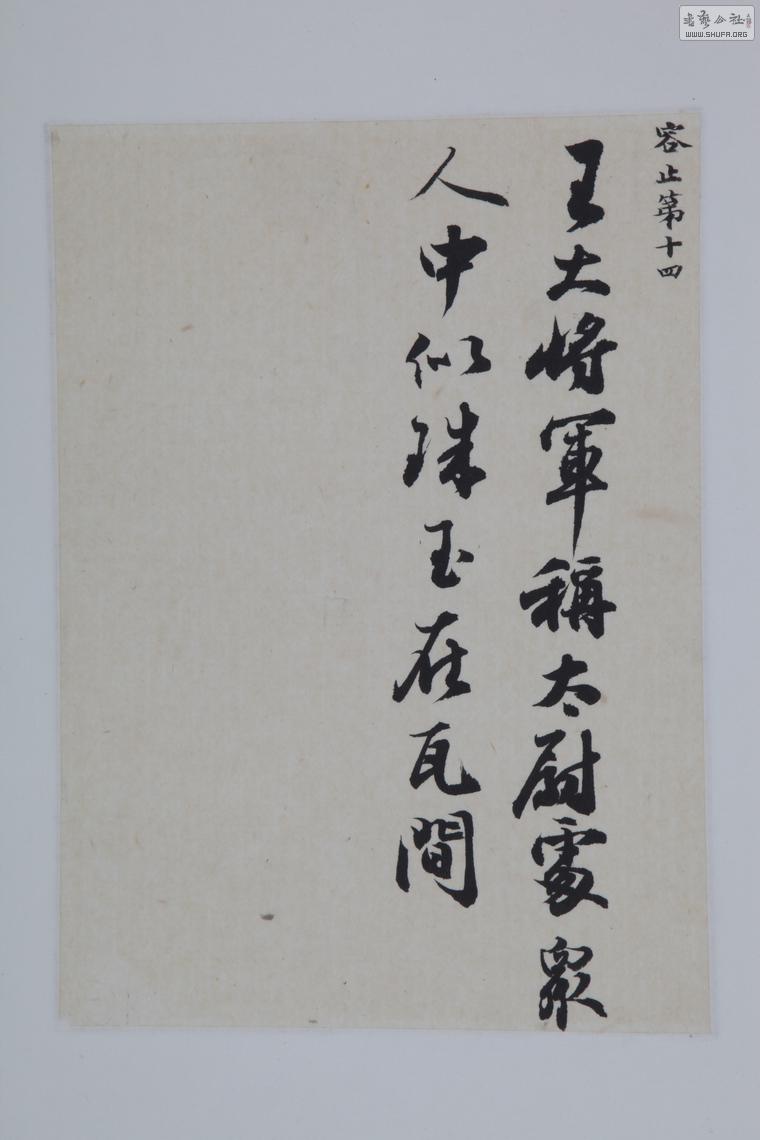 容止第十四
王大將軍稱太尉處眾
人中似珠玉在瓦間
書藝公社
WWW.SHUFA.ORG